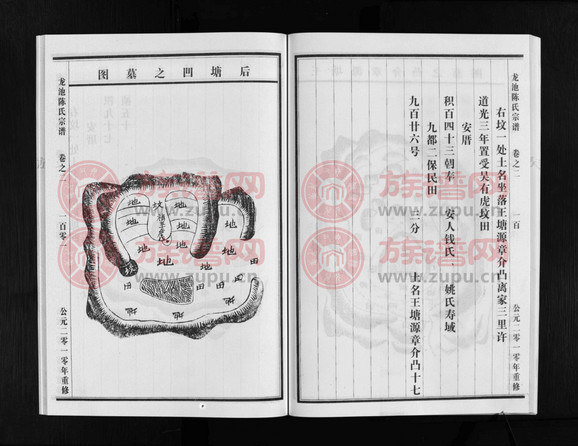 龙池陈氏宗谱 卷之二 一百 公元二零一零年重修
右坟一处土名坐落王塘源章介凸离家三里许
道光三年置受吴有虎坟田
安厝
积百四十三朝奉 安人钱氏 姚氏寿域
九都二保民田
九百廿六号 三分 土名王塘源章介凸十七
后塘凹之墓图
地 坟 地
地 地
地 地 地 地
地 地
坟 田 田 田 田
龙池陈氏宗谱 卷之二 一百零一 公元二零一零年重修
族谱网
http://www.zupu.cn
族谱网
http://www.zupu.cn